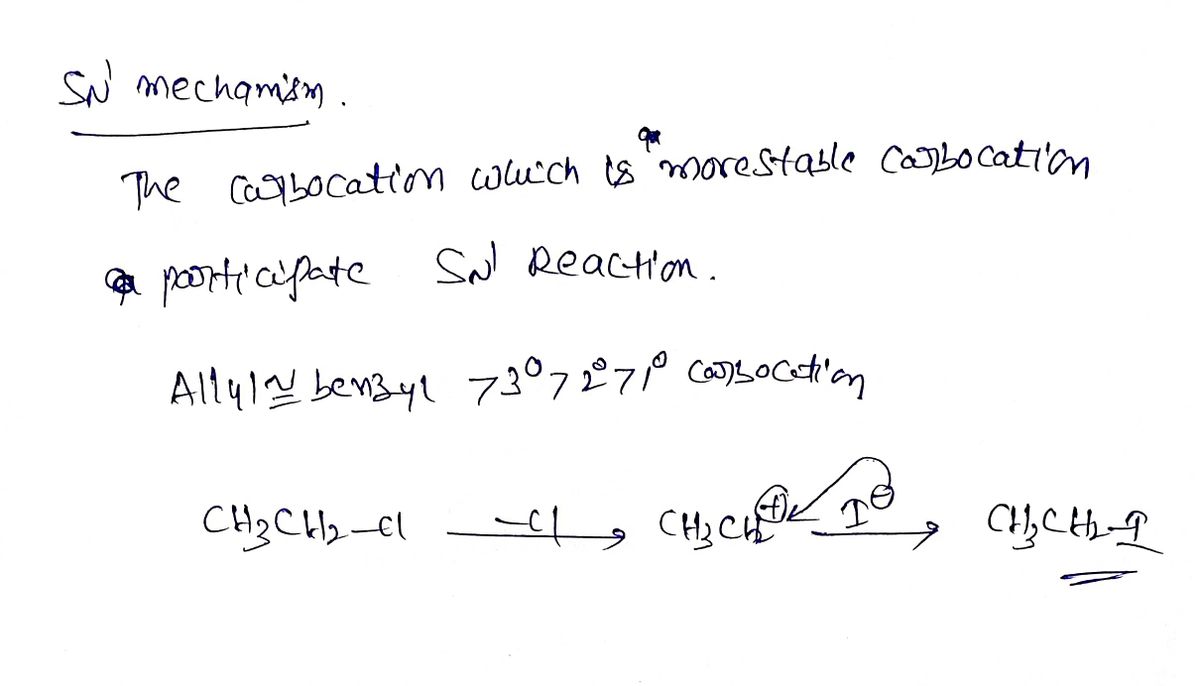 SN¹ mechanism.
The carbocation which is more stable carbocation
participate SN¹ Reaction.
Allyl ≅ benzyl > 3° > 2° > 1° carbocation
CH₃CH₂–Cl —Cl→ CH₃CH₂⊕ I⊖→ CH₃CH₂–I